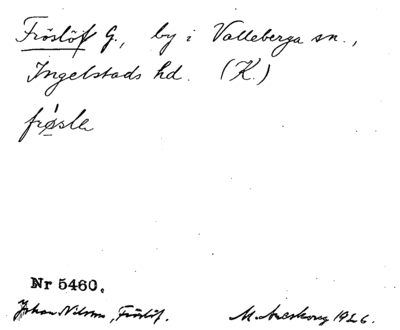 Fröslöf G., by i Valleberga sn.,
Ingelstads hd. (K.)
frøslə
Nr 5460.
Johan Nilsson, Fröslöf. M. Areskoug 1926.